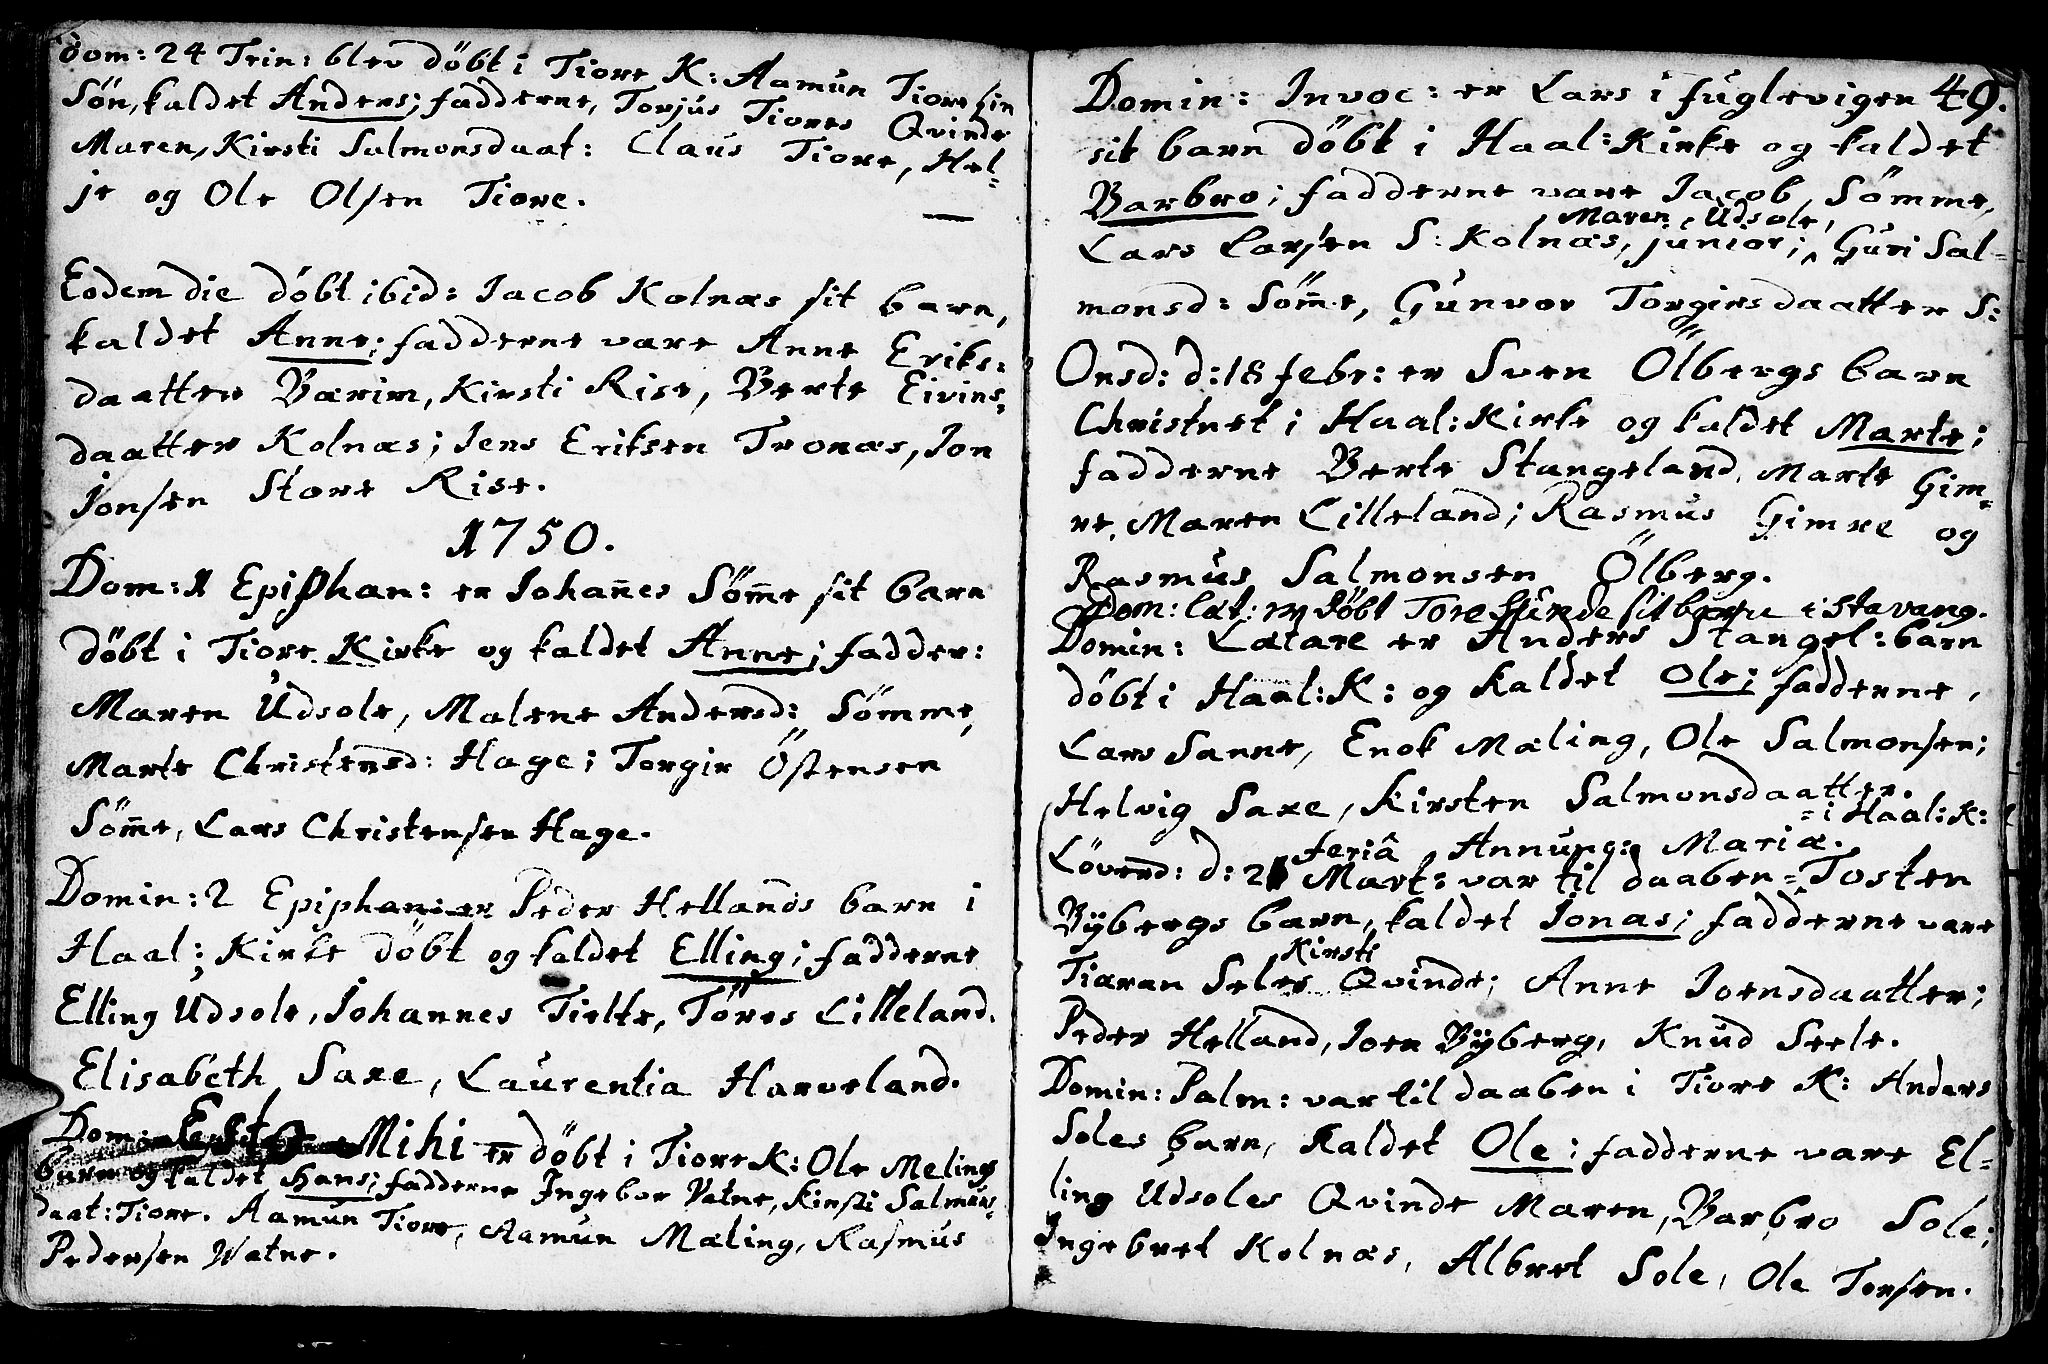 Dom: 24 Trin: blev döbt i Tiore K: Aamun Tiore hin
Søn, kaldet Anders; fadderne, Torjus Tiores Qvinde
Maren, Kirsti Salmonsdaat: Claus Tiore, Hel-
je og Ole Olsen Tiore.
Eodem die döbt ibid: Jacob Kolnæs sit barn,
kaldet Anne; fadderne vare Anne Eriks-
daatter Værim, Kirsti Rise, Berte Eivins-
daatter Kolnæs; Jens Eriksen Tronæs, Jon
Jonsen Store Rise.
1750.
Dom: 1 Epiphan: er Johan̄es Söm̄e sit barn
döbt i Tiore Kirke og kaldet Anne; fadder:
Maren Udsole, Malene Andersd: Sömme,
Marte Christensd: Hage; Torgir Östensen
Söm̄e, Lars Christensen Hage.
Domin: 2 Epiphan: er Peder Hellands barn i
Haal: Kirke döbt og kaldet Elling; fadderne
Elling Udsole, Johannes Tielte, Töres Lilleland.
Elisabeth Saxe, Laurentia Harveland.
Dom: Esto Mihi er döbt i Tiore K: Ole Melings
barn og kaldet Hans; fadderne Ingebor Vatne, Kirsti Salmons-
daat: Tiore. Aamun Tiore, Aamun Mæling, Rasmus
Pedersen Watne.
Domin: Invoc: er Lars i fuglevigen 49.
sit barn döbt i Haal: Kirke og kaldet
Barbro; fadderne vare Jacob Sömme,
Maren Udsole,
Lars Larsen S: Kolnæs, junior; Guri Sal-
monsd: Söm̄e, Gunvor Torgirsdaatter S:
Onsd: d: 18 febr: er Sven Ölbergs barn
Christnet i Haal: Kirke og kaldet Marte;
fadderne Berte Stangeland, Marte Gim-
re, Maren Lilleland; Rasmus Gimre og
Rasmus Salmonsen Ölberg.
Dom: læt: er döbt Tore Sunde sit barn i Stavang.
Domin: Lætare er Anders Stangel: barn
döbt i Haal: K: og kaldet Ole; fadderne,
Lars Sanne, Enok Mæling, Ole Salmonsen;
Helvig Saxe, Kirsten Salmonsdaatter.
i Haal: K:
feriâ Annunc: Mariæ.
Löverd: d: 21 Mart: var til daaben Tosten
Bÿbergs barn, kaldet Jonas; fadderne vare
Kirsti
Tiaran Seles Qvinde; Anne Joensdaatter;
Peder Helland, Joen Bÿberg, Knud Seele.
Domin: Palm: var til daaben i Tiore K: Anders
Soles barn, kaldet Ole; fadderne vare El-
ling Udsoles Qvinde Maren, Barbro Sole;
Ingebret Kolnæs, Albret Sole, Ole Torsen.